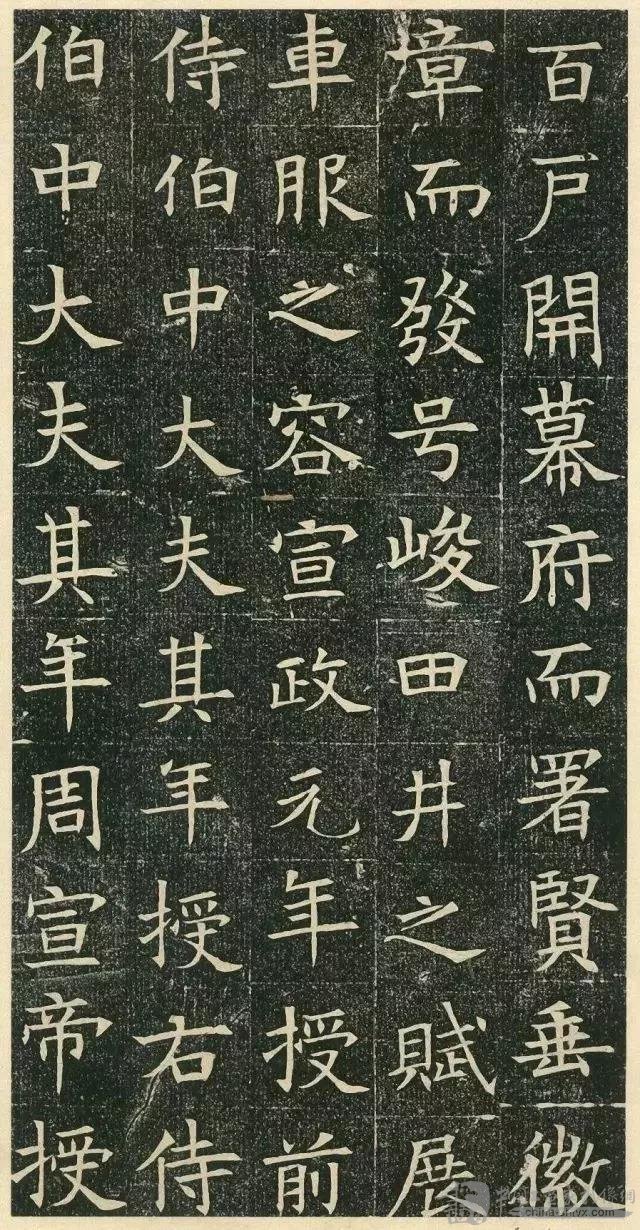 百戶開幕府而署賢垂徽
墇而發号峻田井之賦展
車服之容宣政元年授前
侍伯中大夫其年授右侍
伯中大夫其年周宣帝授